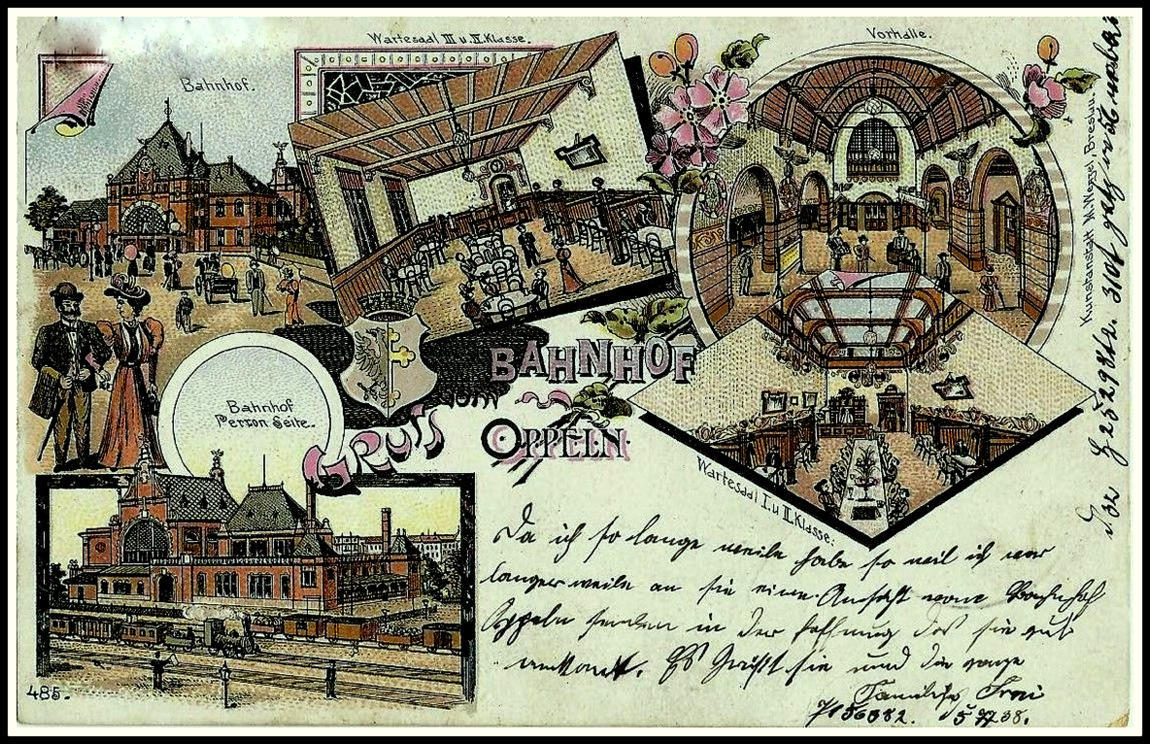 Wartesaal III u. IV. Klasse.
Vorhalle.
Bahnhof.
Kunstanstalt M. Wenzel, Breslau.
BAHNHOF
Bahnhof
Perron Seite.
GRUSS vom
OPPELN
Wartesaal I. u II. Klasse.
Da ich so lange weile habe so will ich vor
langer weile an sie eine Ansicht vom Bahnhof
Oppeln senden in der Hoffnung das sie gut
. Es Grüßt sie und die ganze
Familie
485.